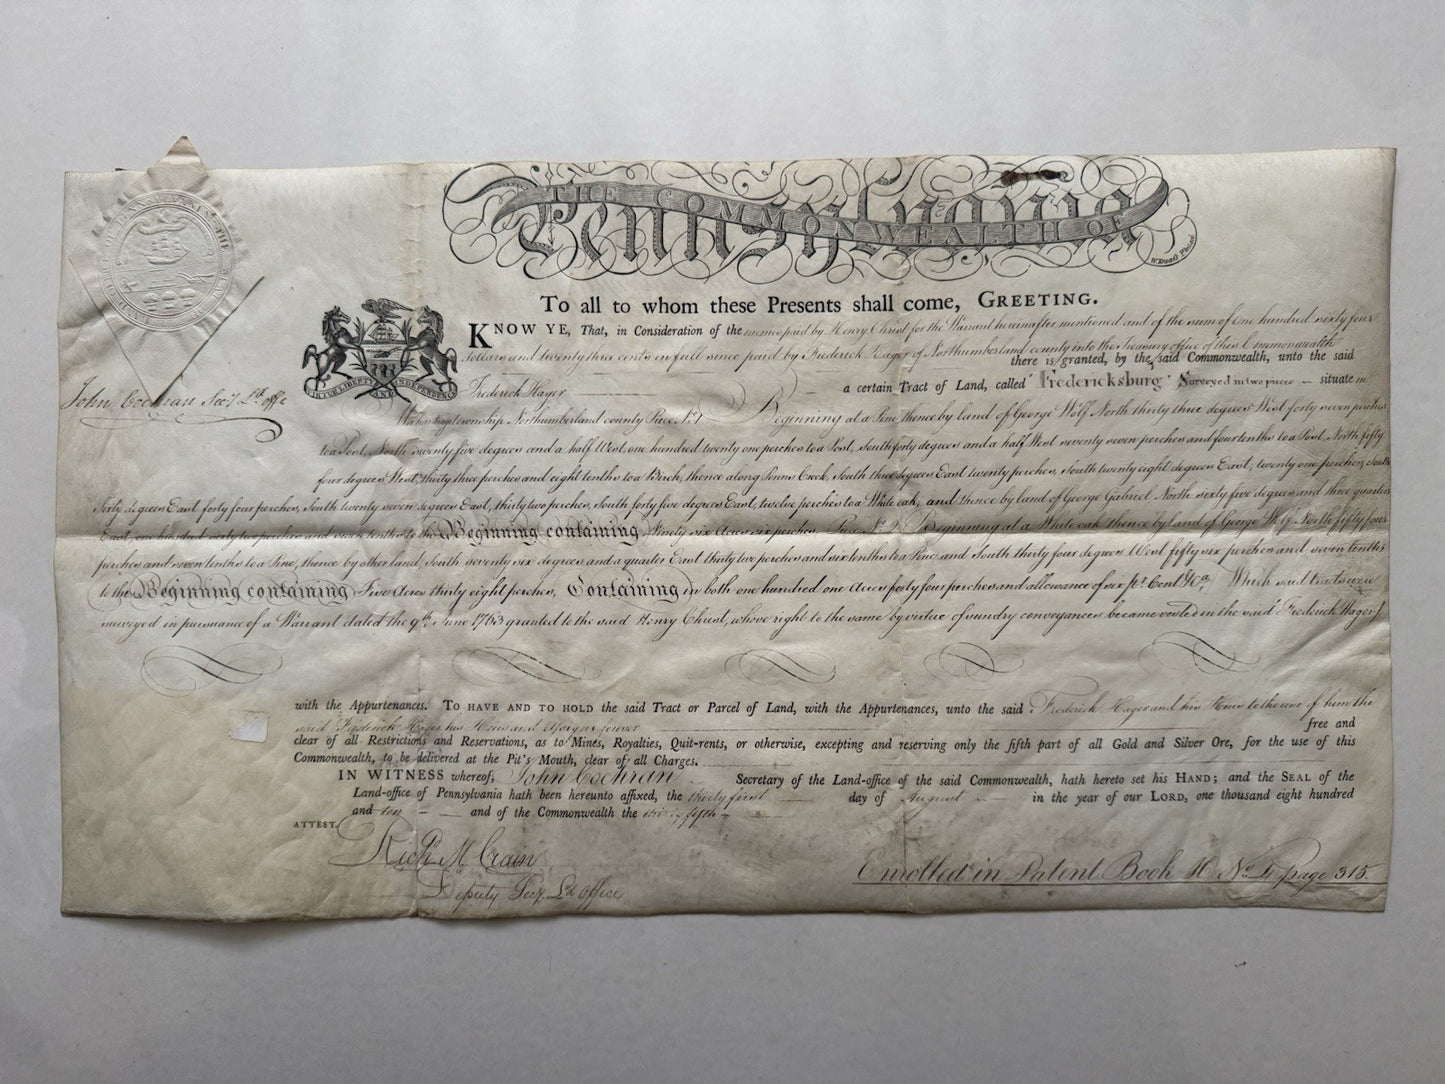 THE COMMONWEALTH OF
Pennsylvania
To all to whom these Presents shall come, GREETING.
KNOW YE, That, in Consideration of the monies paid by Henry Christ for the Warrant hereinafter mentioned and of the sum of One hundred sixty four
dollars and twenty three cents in full since paid by Frederick Hager of Northumberland county into the Treasury office of this Commonwealth
there is granted, by the said Commonwealth, unto the said
VIRTUE LIBERTY AND INDEPENDENCE
Frederick Hager a certain Tract of Land, called Fredericksburg Surveyed in two pieces situate in
John Cochran Secy Ld offe
township Northumberland county Piece No 1 Beginning at a Pine thence by land of George Wolf North thirty three degrees West forty seven perches
to a Post, North seventy five degrees and a half West, one hundred twenty one perches to a Post, South forty degrees and a half West seventy seven perches and four tenths to a Post, North fifty
four degrees West, thirty three perches and eight tenths to a Birch, thence along Penns Creek, South three degrees East twenty perches, South twenty eight degrees East, twenty one perches, South
Sixty degrees East forty four perches, South twenty seven degrees East, thirty two perches, South forty five degrees East, twelve perches to a White oak, and thence by land of George Gabriel North sixty five degrees and three quarters
East one hundred sixty two perches and seven tenths to the Beginning containing Ninety six Acres six perches. Piece No 2 Beginning at a White oak thence by land of George Wolf North fifty four
perches and seven tenths to a Pine, thence by other land, South seventy six degrees and a quarter East thirty two perches and six tenths to a Pine and South thirty four degrees West fifty six perches and seven tenths
to the Beginning containing Five Acres thirty eight perches, Containing in both one hundred one Acres forty four perches and allowance of six pr Cent &ca. Which said tracts were
surveyed in pursuance of a Warrant dated the 9th June 1763 granted to the said Henry Christ, whose right to the same by virtue of sundry conveyances became vested in the said Frederick Hager]
with the Appurtenances. TO HAVE AND TO HOLD the said Tract or Parcel of Land, with the Appurtenances, unto the said Frederick Hager and his Heirs to the use of him the
said Frederick Hager his Heirs and Assigns forever free and
clear of all Restrictions and Reservations, as to Mines, Royalties, Quit-rents, or otherwise, excepting and reserving only the fifth part of all Gold and Silver Ore, for the use of this
Commonwealth, to be delivered at the Pit's Mouth, clear of all Charges.
IN WITNESS whereof, John Cochran Secretary of the Land-office of the said Commonwealth, hath hereto set his HAND; and the SEAL of the
Land-office of Pennsylvania hath been hereunto affixed, the thirty first day of August in the year of our LORD, one thousand eight hundred
and ten and of the Commonwealth the thirty fifth
ATTEST.
Richd M Crain
Deputy Secy Ld office
Enrolled in Patent Book H No 4 page 315.